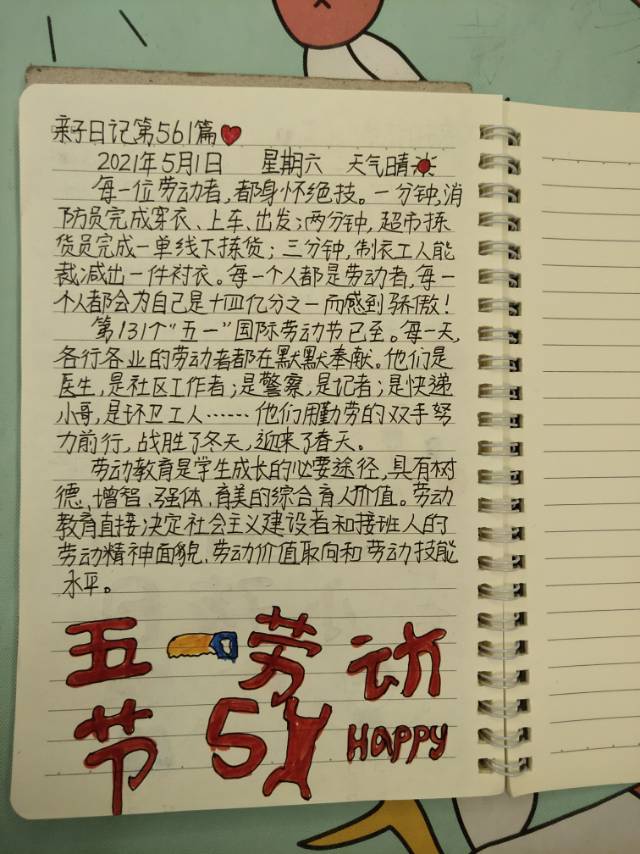 亲子日记第561篇
2021年5月1日 星期六 天气晴
每一位劳动者,都身怀绝技。一分钟,消
防员完成穿衣、上车、出发;两分钟,超市拣
货员完成一单线下拣货;三分钟,制衣工人能
裁减出一件衬衣。每一个人都是劳动者,每一
个人都会为自己是十四亿分之一而感到骄傲!
第131个“五一”国际劳动节已至。每一天,
各行各业的劳动者都在默默奉献。他们是
医生,是社区工作者;是警察,是记者;是快递
小哥,是环卫工人……他们用勤劳的双手努
力前行,战胜了冬天,迎来了春天。
劳动教育是学生成长的必要途径,具有树
德、增智、强体、育美的综合育人价值。劳动
教育直接决定社会主义建设者和接班人的
劳动精神面貌、劳动价值取向和劳动技能
水平。
五一劳动
节 51 HAPPY